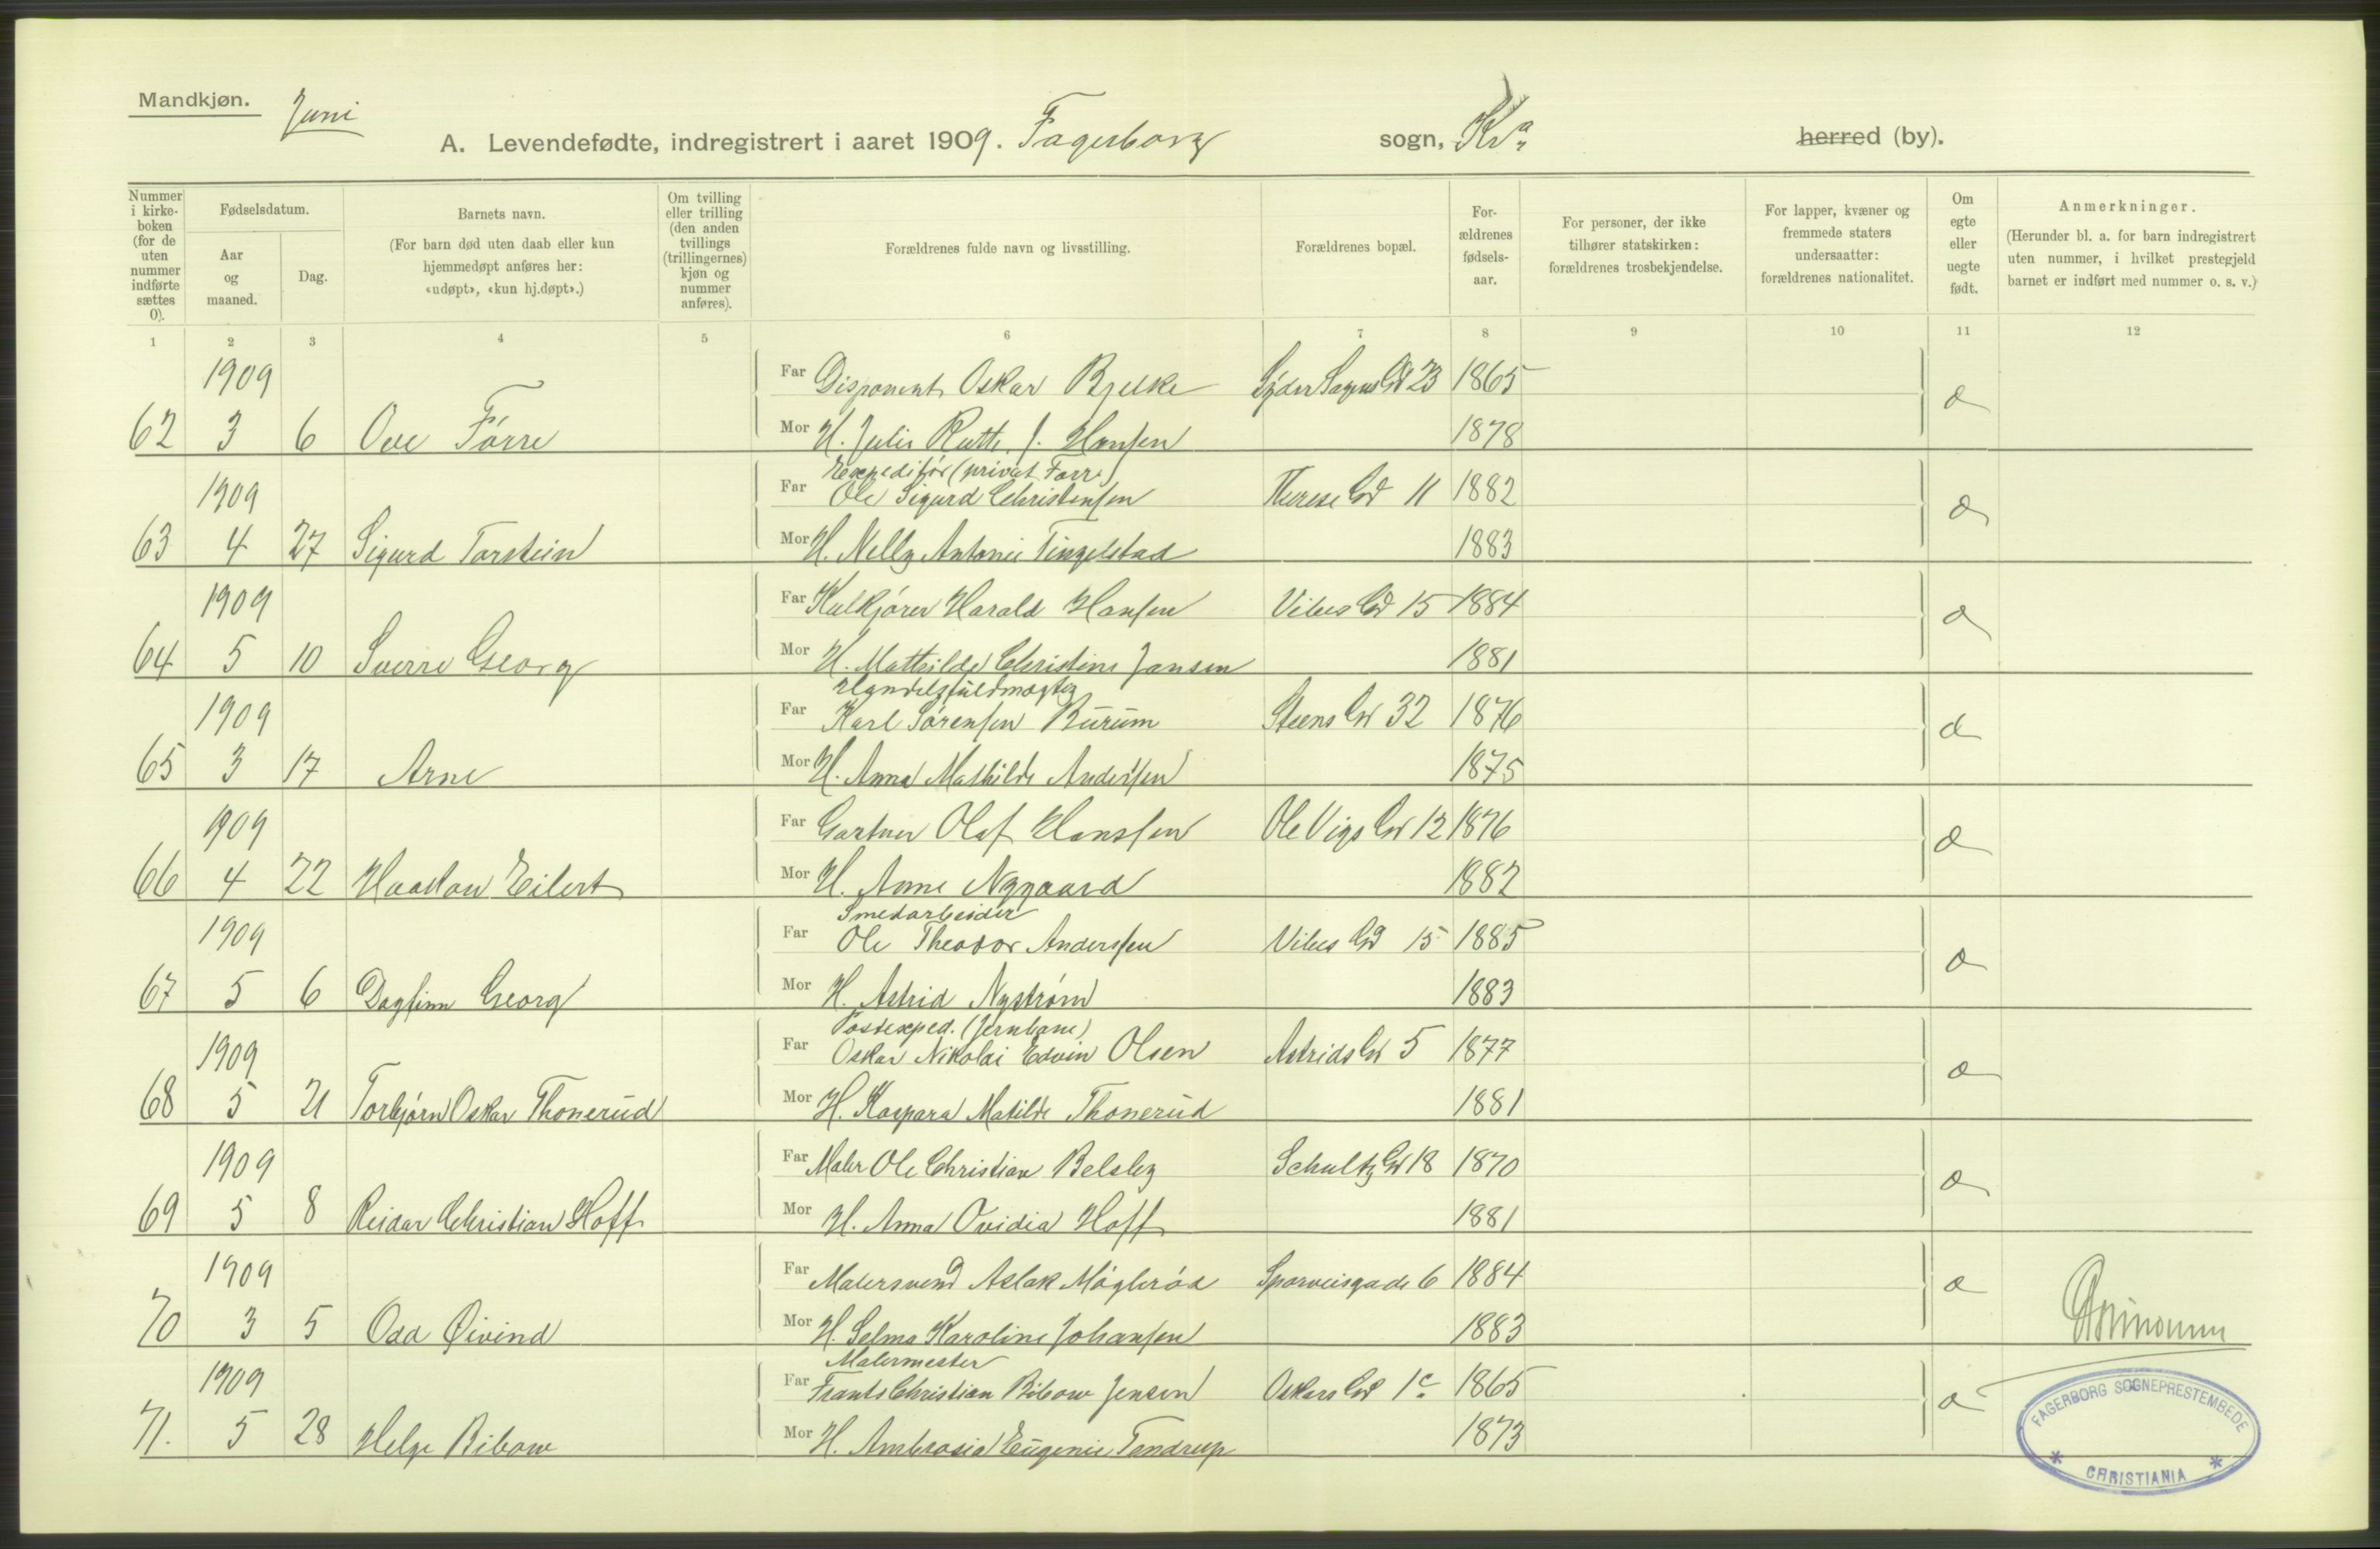 Mandkjøn.
Juni
A. Levendefødte, indregistrert i aaret 1909. Fagerborg sogn, Kra herred (by).
Nummer i kirkeboken (for de uten nummer indførte sættes 0).
Fødselsdatum.
Aar og maaned.
Dag.
Barnets navn.
(For barn død uten daab eller kun hjemmedøpt anføres her: «udøpt», «kun hj.døpt».)
Om tvilling eller trilling (den anden tvillings (trillingernes) kjøn og nummer anføres).
Forældrenes fulde navn og livsstilling.
Forældrenes bopæl.
Forældrenes fødselsaar.
For personer, der ikke tilhører statskirken: forældrenes trosbekjendelse.
For lapper, kvæner og fremmede staters undersaatter: forældrenes nationalitet.
Om egte eller uegte født.
Anmerkninger.
(Herunder bl. a. for barn indregistrert uten nummer, i hvilket prestegjeld barnet er indført med nummer o. s. v.)
1 2 3 4 5 6 7 8 9 10 11 12
1909 Far Disponent Oskar Bjelke 23 1865
62 3 6 Ove Mor H. Julie f. Hansen 1878
Expeditør (privat Forr.)
1909 Far Ole Sigurd Christensen Therese Gd 11 1882
63 4 27 Sigurd Torstein Mor H. Nelly Antonie Tingelstad 1883
1909 Far Kulkjører Harald Hansen Vibes Gd 15 1884
64 5 10 Sverre Georg Mor H. Mathilde Christine Jansen 1881
Handelsfuldmægtig
1909 Far Karl Sørensen Burum Steens Gd 32 1876
65 3 17 Arne Mor H. Anna Mathilde Andersen 1875
1909 Far Gartner Olaf Hanssen Ole Vigs Gd 12 1876
66 4 22 Haakon Eilert Mor H. Anne Nygaard 1882
Smedarbeider
1909 Far Ole Theodor Anderssen Vibes Gd 15 1885
67 5 6 Dagfinn Georg Mor H. Astrid Nystrøm 1883
Postexped. (Jernbane)
1909 Far Oskar Nikolai Edvin Olsen Astrids Gd 5 1877
68 5 21 Torbjørn Oskar Thonerud Mor H. Kaspara Matilde Thonerud 1881
1909 Far Maler Ole Christian Belsby Schultz Gd 18 1870
69 5 8 Reidar Christian Hoff Mor H. Anna Ovidia Hoff 1881
1909 Far Malersvend Aslak Møglerød Sporveisgade 6 1884
70 3 5 Odd Øivind Mor H. Selma Karoline Johansen 1883
Malermester
1909 Far Frants Christian Bibow Jensen Oskars Gd 1c 1865
71. 5 28 Helge Bibow Mor H. Ambrosia Eugenie Tandrup 1873
FAGERBORG SOGNEPRESTEMBEDE
* CHRISTIANIA *